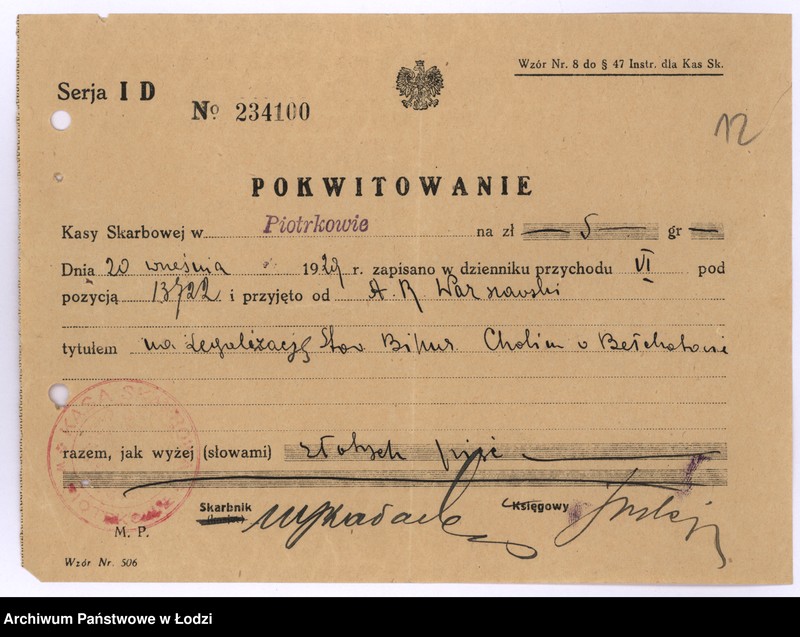 Wzór Nr. 8 do § 47 Instr. dla Kas Sk.
Serja I D
№ 234100
12
POKWITOWANIE
Kasy Skarbowej w Piotrkowie na zł — 5 — gr —
Dnia 20 września 1929 r. zapisano w dzienniku przychodu VI pod
pozycją 13722 i przyjęto od A. R. Warszawski
tytułem na legalizację Stow Bikur Cholim w Bełchatowie
razem, jak wyżej (słowami) złotych pięć
KASA SKARBOWA
Skarbnik
Księgowy
M. P.
Wzór Nr. 506
Archiwum Państwowe w Łodzi